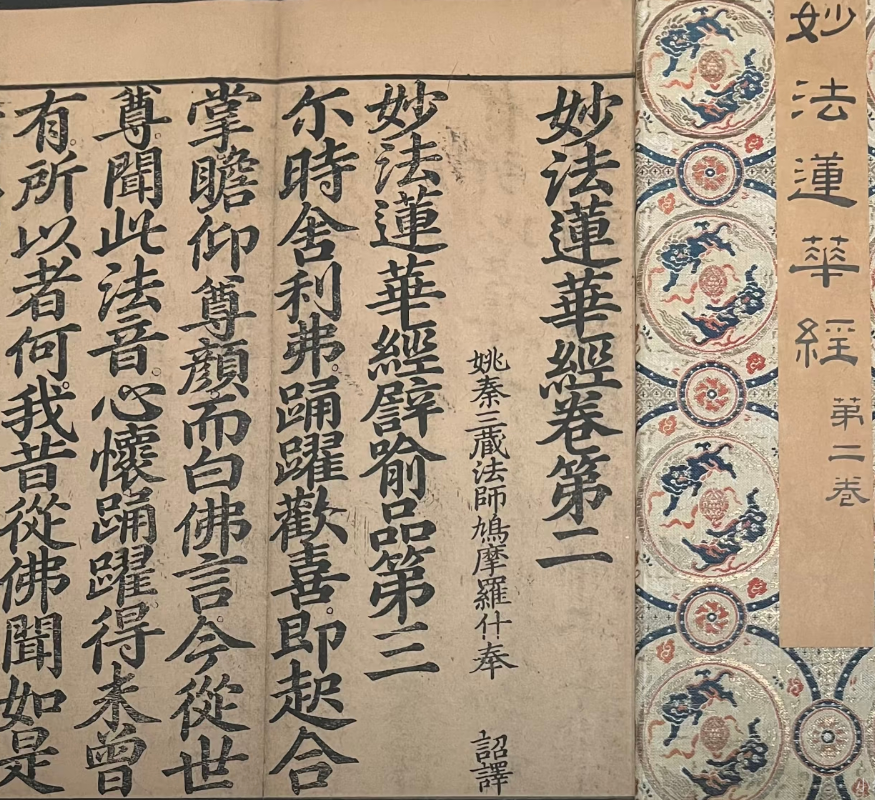 妙法蓮華經
第二卷
妙法蓮華經卷第二
姚秦三藏法師鳩摩羅什奉 詔譯
妙法蓮華經譬喻品第三
尓時舍利弗踊躍歡喜。即起合
掌瞻仰尊顏。而白佛言。今從世
尊。聞此法音。心懷踊躍。得未曾
有。所以者何。我昔從佛聞如是